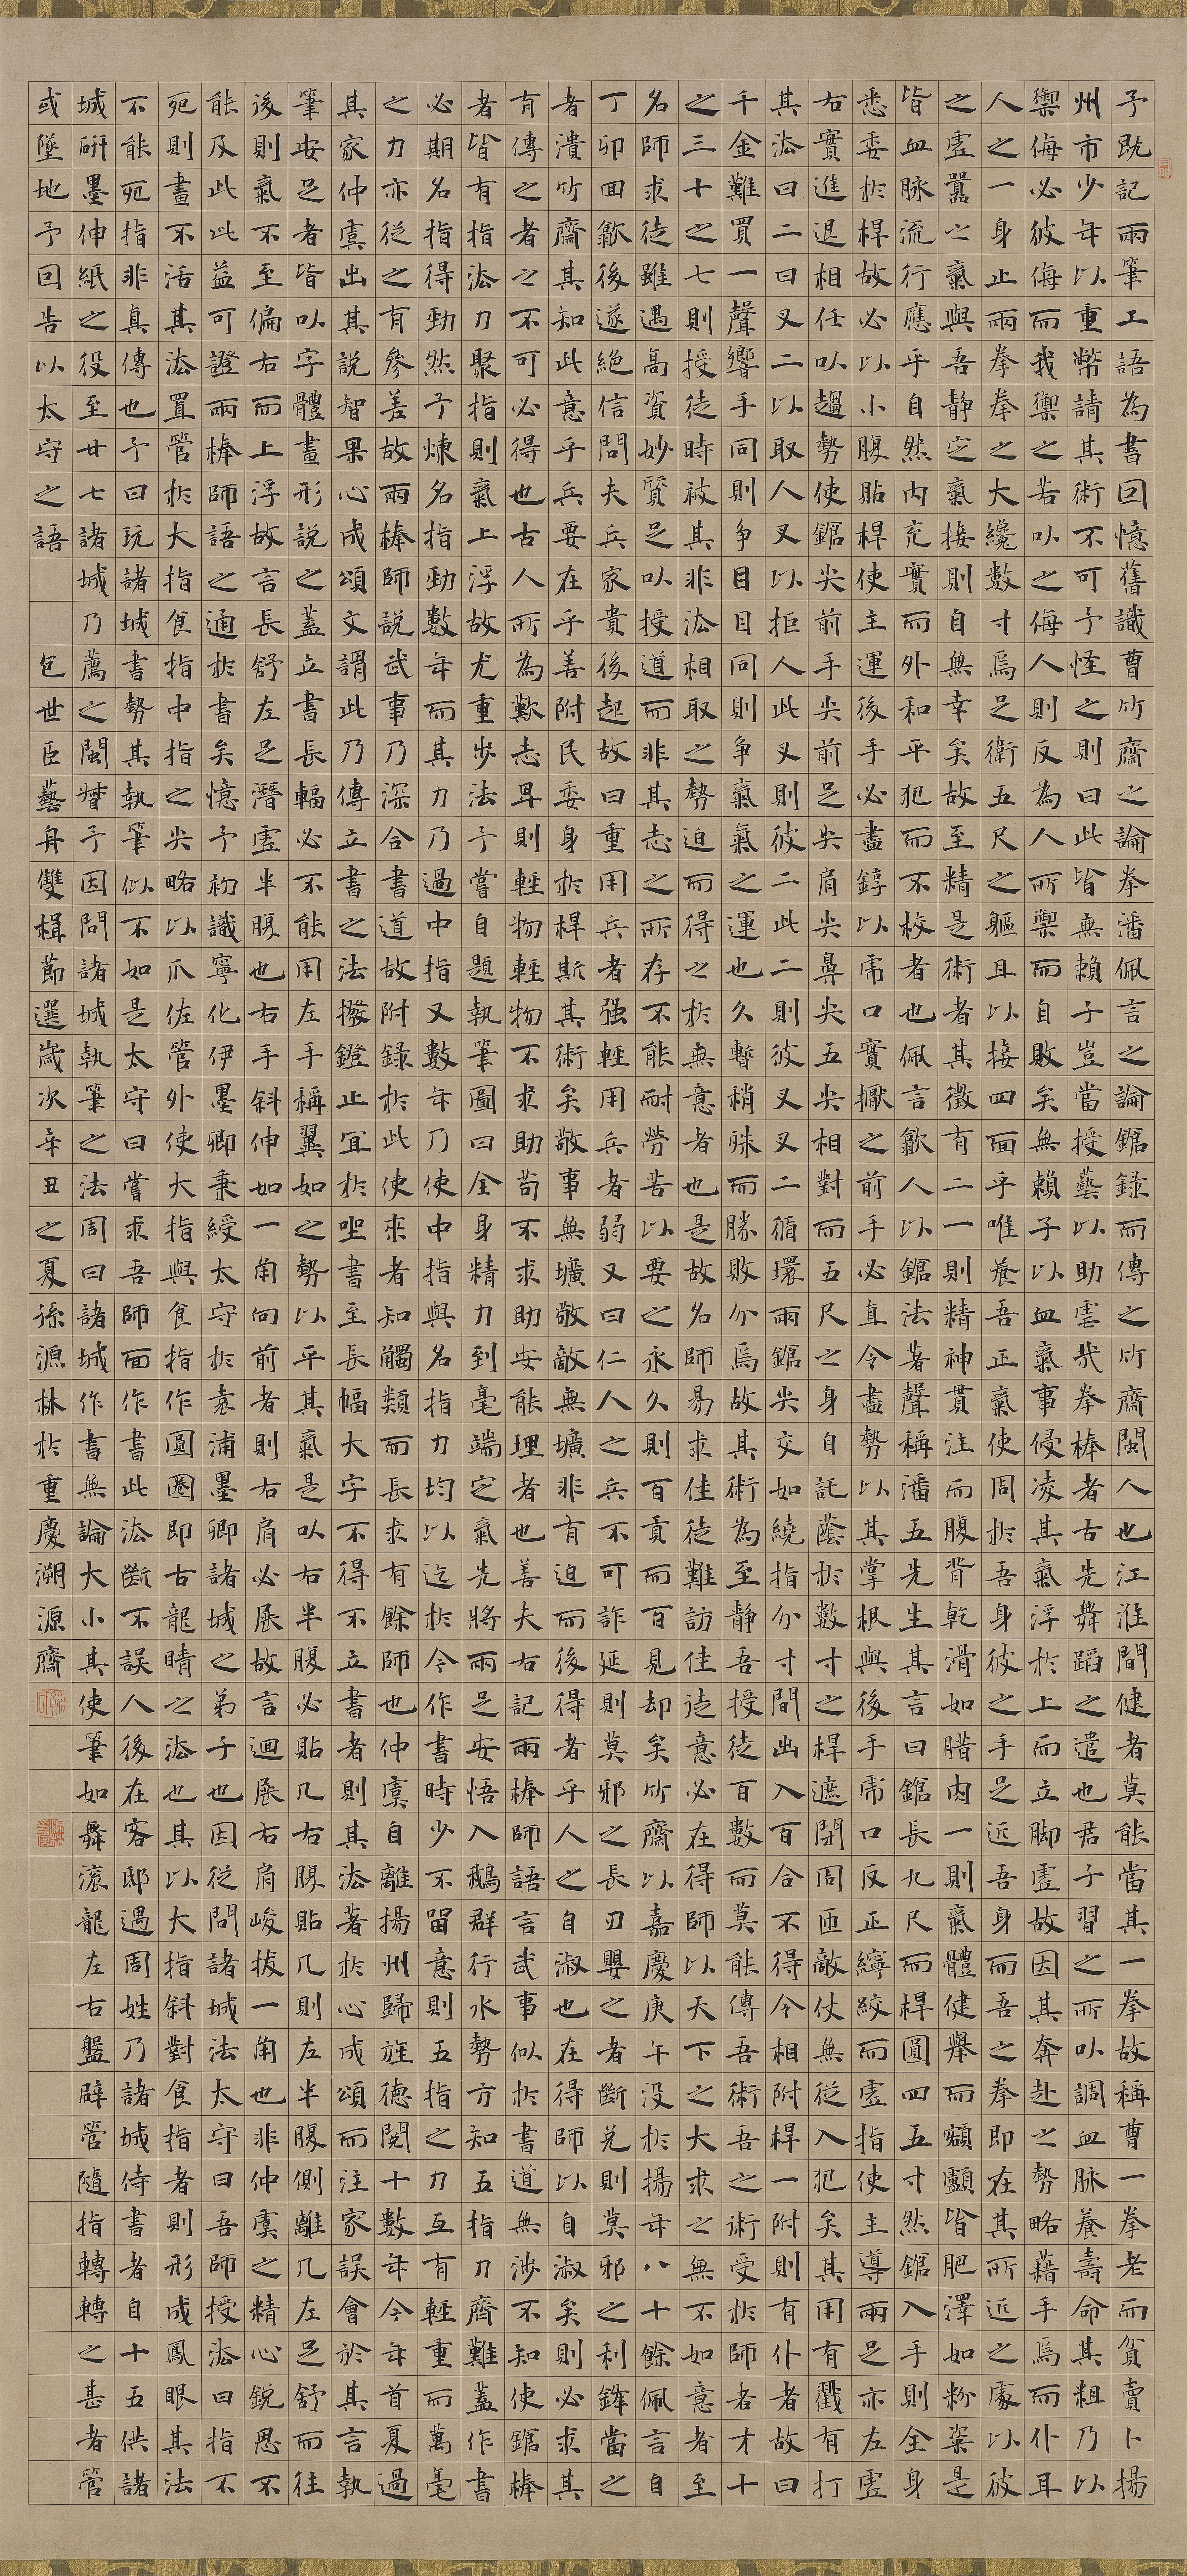 予既記兩筆工語為書回憶舊識曹竹齋之論拳潘佩言之論鋸錄而傳之竹齋閩人也江淮間健者莫能當其一拳故稱曹一拳老而貧賣卜揚
州市少年以重幣請其術不可予怪之則曰此皆無賴子豈當授藝以助虐哉拳棒者古先舞蹈之遺也君子習之所以調血脉養壽命其粗乃以
禦侮必彼侮而我禦之若以之侮人則反為人所禦而自敗矣無賴子以血氣事侵凌其氣浮於上而立脚虛故因其奔赴之勢略藉手焉而仆耳
人之一身止兩拳拳之大纔數寸焉足衛五尺之軀且以接四面乎唯養吾正氣使周於吾身彼之手足近吾身而吾之拳即在其所近之處以彼
之虛囂之氣與吾靜定氣接則自無幸矣故至精是術者其徵有二一則精神貫注而腹背乾滑如腊肉一則氣體健舉而額顱皆肥澤如粉粢是
皆血脉流行應乎自然內充實而外和平犯而不校者也佩言歙人以鋸法著聲稱潘五先生其言曰鋸長九尺而桿圓四五寸然鋸入手則全身
悉委於桿故必以小腹貼桿使主運後手必盡錞以虎口實擫之前手必直令盡勢以其掌根與後手虎口反正繂絞而虛指使主導兩足亦左虛
右實進退相任以趨勢使鋸尖前手尖前足尖肩尖鼻尖五尖相對而五尺之身自託蔭於數寸之桿遮閉周匝敵仗無從入犯矣其用有戳有打
其法曰二曰叉二以取人叉以拒人此叉則彼二此二則彼叉叉二循環兩鋸尖交如繞指分寸間出入百合不得令相附桿一附則有仆者故曰
千金難買一聲響手同則爭目目同則爭氣氣之運也久暫稍殊而勝敗分焉故其術為至靜吾授徒百數而莫能傳吾術吾之術受於師者才十
之三十之七則授徒時被其非法相取之勢迫而得之於無意者也是故名師易求佳徒難訪佳徒意必在得師以天下之大求之無不如意者至
名師求徒雖遇高資妙質足以授道而非其志之所存不能耐勞苦以要之永久則百貢而百見却矣竹齋以嘉慶庚午沒於揚年八十餘佩言自
丁卯回歙後遂絕信問夫兵家貴後起故曰重用兵者强輕用兵者弱又曰仁人之兵不可詐延則莫邪之長刃嬰之者斷兌則莫邪之利鋒當之
者潰竹齋其知此意乎兵要在乎善附民委身於桿斯其術矣敬事無壙敬敵無壙非有迫而後得者乎人之自淑也在得師以自淑矣則必求其
有傳之者之不可必得也古人所為歎志卑則輕物輕物不求助苟不求助安能理者也善夫右記兩棒師語言武事似於書道無涉不知使鋸棒
者皆有指法力聚指則氣上浮故尤重步法予嘗自題執筆圖曰全身精力到毫端定氣先將兩足安悟入鵝群行水勢方知五指力齊難蓋作書
必期名指得勁然予煉名指勁數年而其力乃過中指又數年乃使中指與名指力均以迄於今作書時少不留意則五指之力互有輕重而萬毫
之力亦從之有參差故兩棒師說武事乃深合書道故附錄於此使來者知觸類而長求有餘師也仲虞自離揚州歸旌德閱十數年今年首夏過
其家仲虞出其說智果心成頌文謂此乃傳立書之法撥鐙止宜於坐書至長幅大字不得不立書者則其法著於心成頌而注家誤會於其言執
筆安足者皆以字體畫形說之蓋立書長輻必不能用左手稱翼如之勢以平其氣是以右半腹必貼几右腹貼几則左半腹側離几左足舒而往
後則氣不至偏右而上浮故言長舒左足潛虛半腹也右手斜伸如一角向前者則右肩必展故言迴展右肩峻拔一角也非仲虞之精心銳思不
能及此此益可證兩棒師語之通於書矣憶予初識寧化伊墨卿秉綬太守於袁浦墨卿諸城之弟子也因從問諸城法太守曰吾師授法曰指不
死則畫不活其法置管於大指食指中指之尖略以爪佐管外使大指與食指作圓圈即古龍睛之法也其以大指斜對食指者則形成鳳眼其法
不能死指非真傳也予曰玩諸城書勢其執筆似不如是太守曰嘗求吾師面作書此法斷不誤人後在客邸遇周姓乃諸城侍書者自十五供諸
城研墨伸紙之役至廿七諸城乃薦之閩督予因問諸城執筆之法周曰諸城作書無論大小其使筆如舞滾龍左右盤辟管隨指轉轉之甚者管
或墜地予回告以太守之語 包世臣藝舟雙楫節選歲次辛丑之夏孫源林於重慶溯源齋